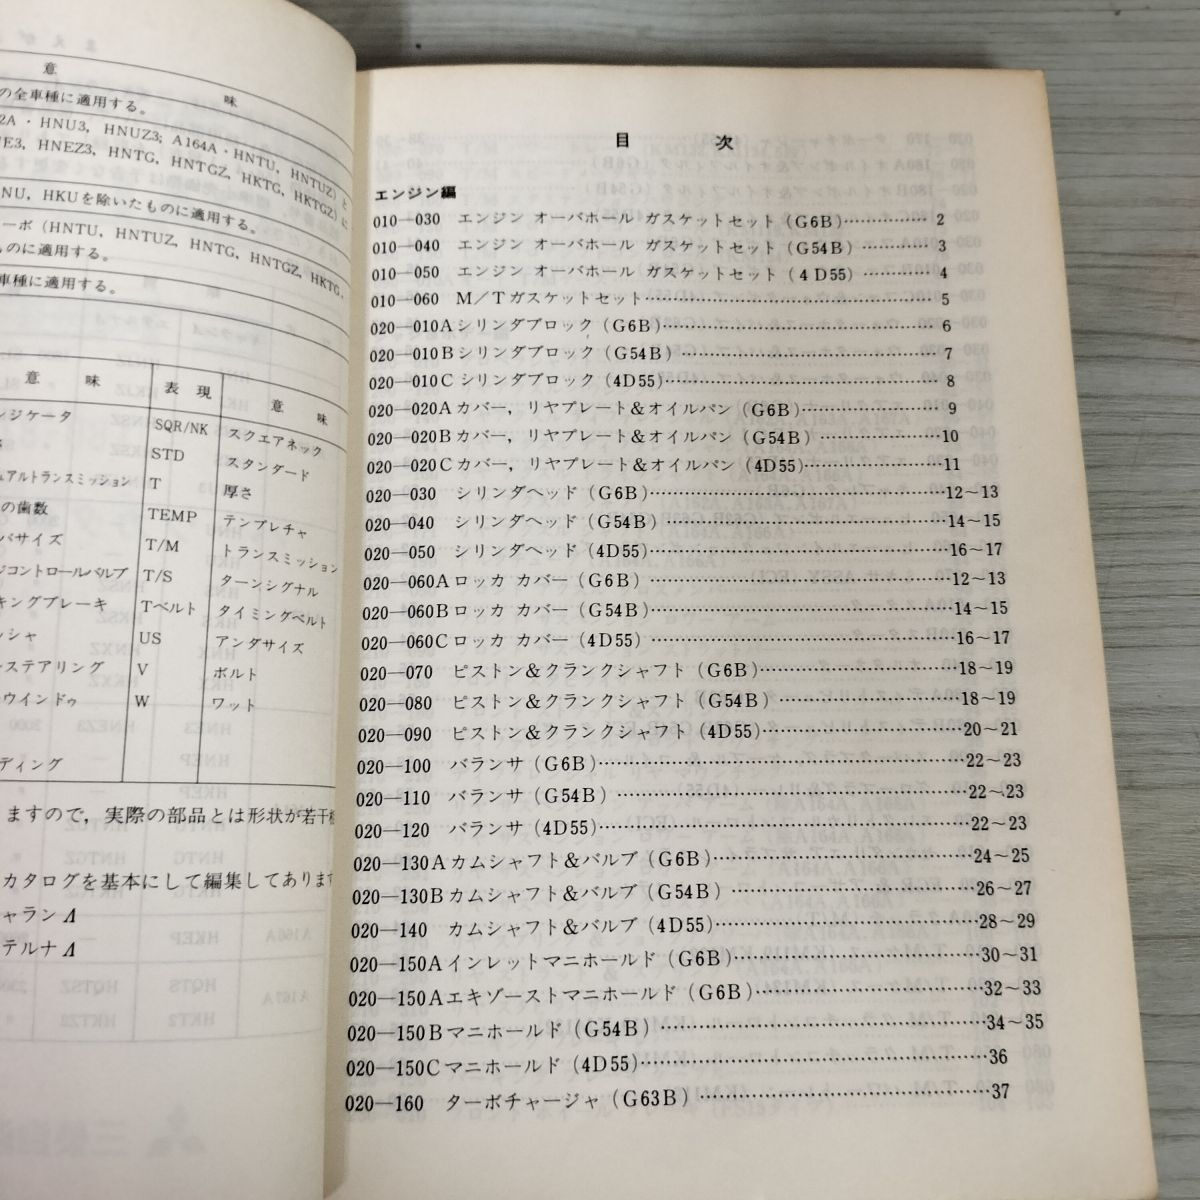 意 味
の全車種に適用する。
2A・HNU3, HNUZ3; A164A・HNTU, HNTUZ)と
E3, HNEZ3, HNTG, HNTGZ, HKTG, HKTGZ)に
NU, HKUを除いたものに適用する。
ーボ(HNTU, HNTUZ, HNTG, HNTGZ, HKTG,
ものに適用する。
車種に適用する。
意 味 表 現 意 味
ンジケータ SQR/NK スクエアネック
STD スタンダード
ュアルトランスミッション T 厚さ
の歯数 TEMP テンプレチャ
バサイズ T/M トランスミッション
ジコントロールバルブ T/S ターンシグナル
キングブレーキ Tベルト タイミングベルト
ッシャ US アンダサイズ
ーステアリング V ボルト
ウインドゥ W ワット
ディング
ますので, 実際の部品とは形状が若干
カタログを基本にして編集してあります
ャランΛ
テルナΛ
目 次
エンジン編
010―030 エンジン オーバホール ガスケットセット(G6B)…………… 2
010―040 エンジン オーバホール ガスケットセット(G54B)………… 3
010―050 エンジン オーバホール ガスケットセット(4D55)………… 4
010―060 M/Tガスケットセット…………………………………… 5
020―010Aシリンダブロック(G6B)………………………………… 6
020―010Bシリンダブロック(G54B)……………………………… 7
020―010Cシリンダブロック(4D55)……………………………… 8
020―020Aカバー, リヤプレート&オイルパン(G6B)…………… 9
020―020Bカバー, リヤプレート&オイルパン(G54B)…………10
020―020Cカバー, リヤプレート&オイルパン(4D55)…………11
020―030 シリンダヘッド(G6B)……………………………………12~13
020―040 シリンダヘッド(G54B)…………………………………14~15
020―050 シリンダヘッド(4D55)…………………………………16~17
020―060Aロッカ カバー(G6B)……………………………………12~13
020―060Bロッカ カバー(G54B)…………………………………14~15
020―060Cロッカ カバー(4D55)…………………………………16~17
020―070 ピストン&クランクシャフト(G6B)……………………18~19
020―080 ピストン&クランクシャフト(G54B)…………………18~19
020―090 ピストン&クランクシャフト(4D55)…………………20~21
020―100 バランサ(G6B)……………………………………………22~23
020―110 バランサ(G54B)…………………………………………22~23
020―120 バランサ(4D55)…………………………………………22~23
020―130Aカムシャフト&バルブ(G6B)…………………………24~25
020―130Bカムシャフト&バルブ(G54B)………………………26~27
020―140 カムシャフト&バルブ(4D55)………………………28~29
020―150Aインレットマニホールド(G6B)………………………30~31
020―150Aエキゾーストマニホールド(G6B)……………………32~33
020―150Bマニホールド(G54B)…………………………………34~35
020―150Cマニホールド(4D55)…………………………………36
020―160 ターボチャージャ(G63B)……………………………37